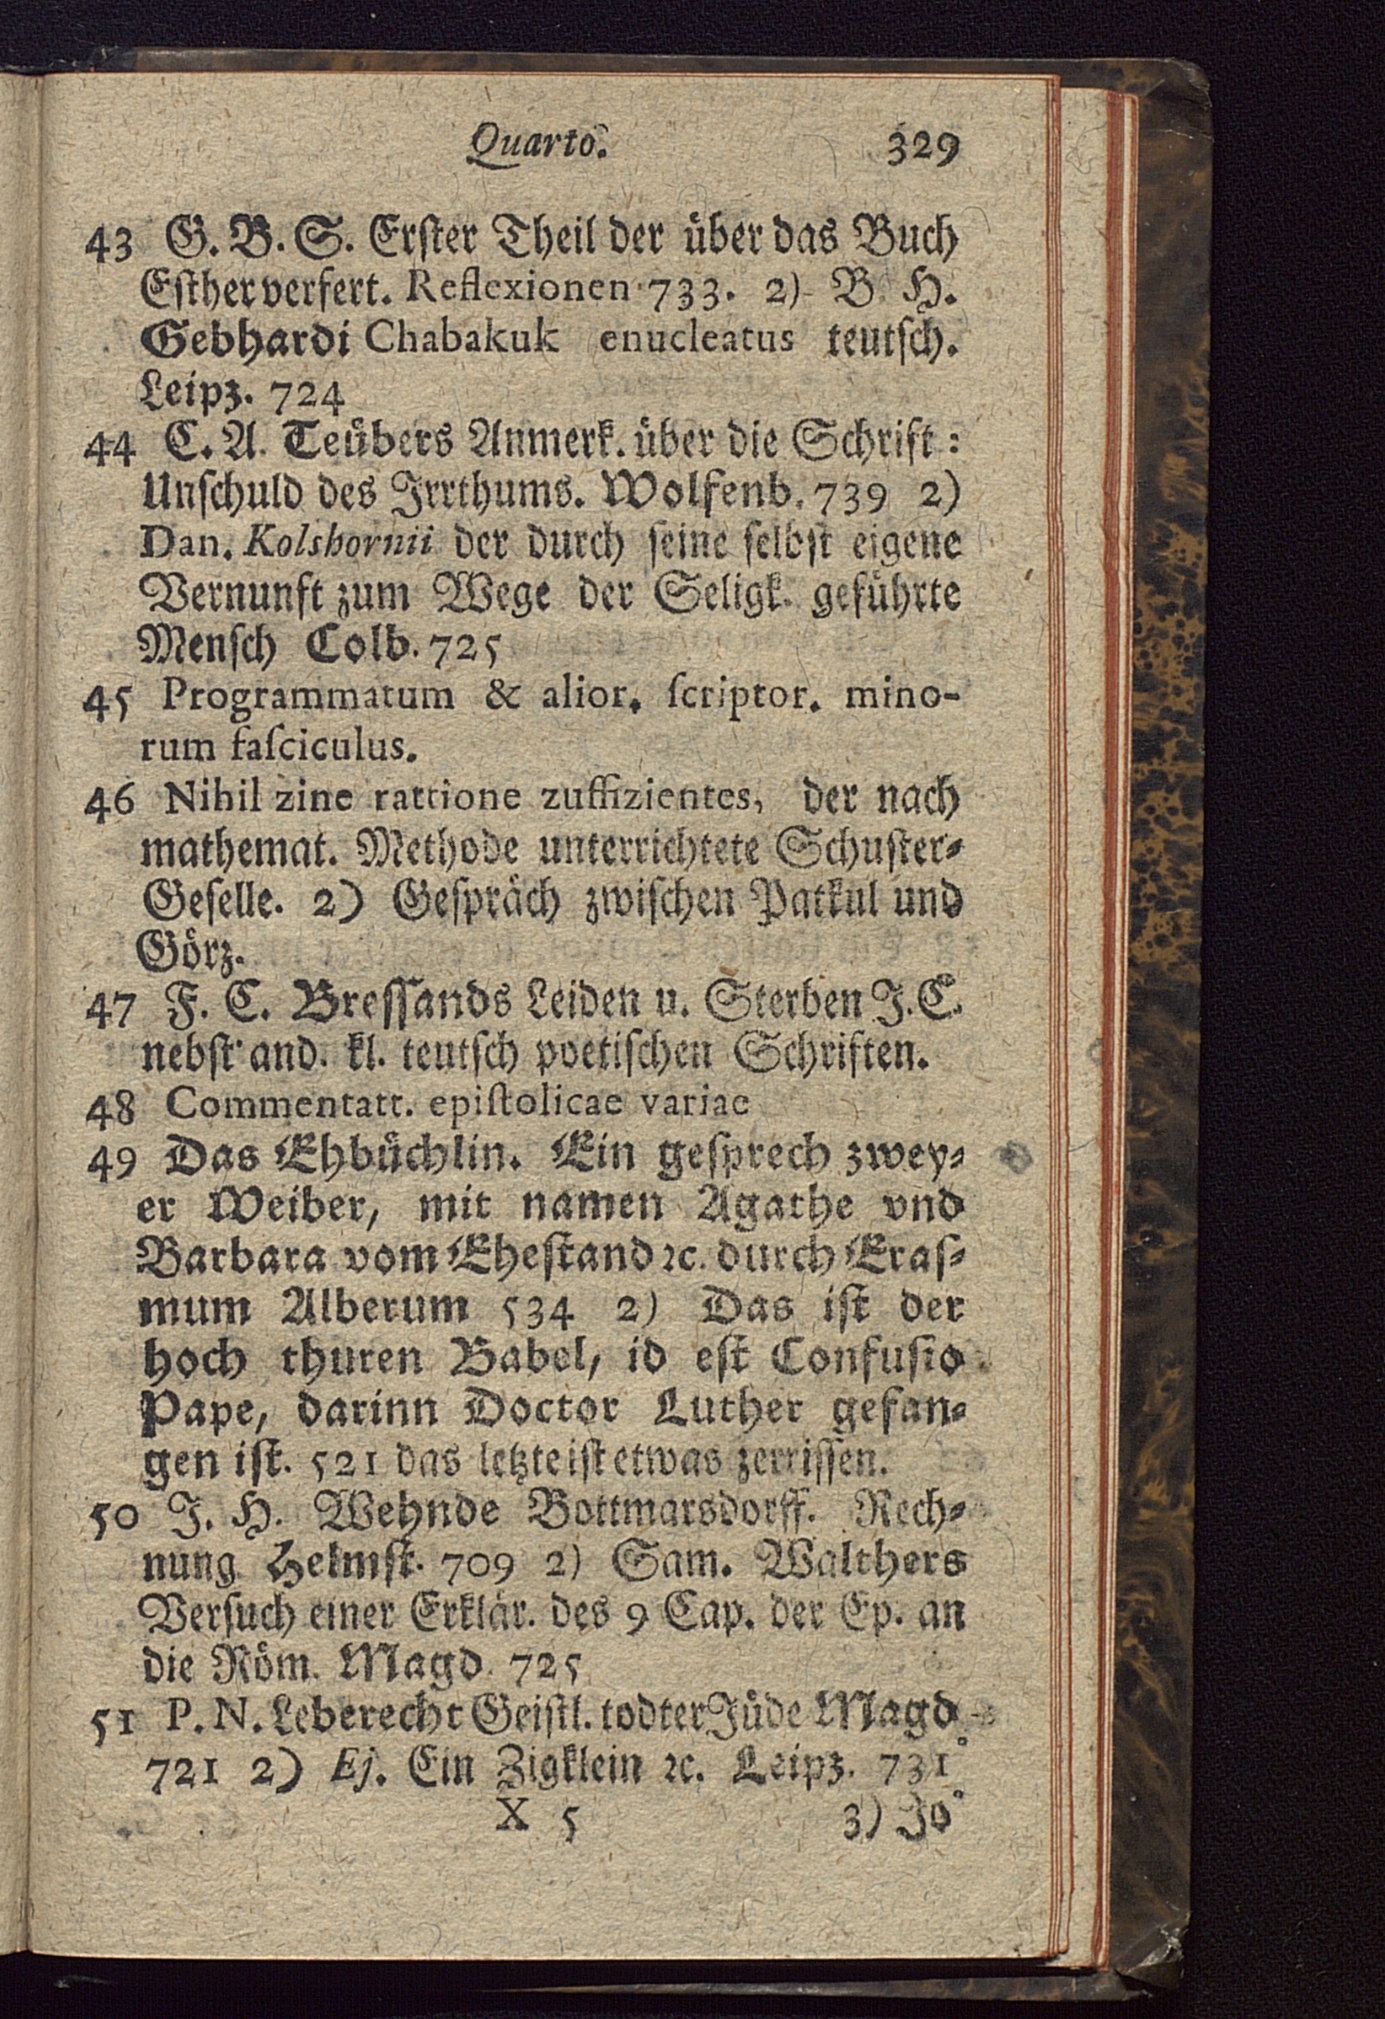 Quarto. 329
43 G. B. S. Erster Theil der über das Buch
Esther verfert. Reflexionen 733. 2) B. H.
Gebhardi Chabakuk enucleatus teutsch.
Leipz. 724
44 C. A. Teübers Anmerk. über die Schrift:
Unschuld des Irrthums. Wolfenb. 739 2)
Dan. Kolshornii der durch seine selbst eigene
Vernunft zum Wege der Seligk. geführte
Mensch Colb. 725
45 Programmatum & alior. scriptor. mino-
rum fasciculus.
46 Nihil zine rattione zuffizientes, der nach
mathemat. Methode unterrichtete Schuster-
Geselle. 2) Gespräch zwischen Patkul und
Görz.
47 F. C. Bressands Leiden u. Sterben J. C.
nebst and. kl. teutsch poetischen Schriften.
48 Commentatt. epistolicae variae
49 Das Ehbüchlin. Ein gesprech zwey-
er Weiber, mit namen Agathe vnd
Barbara vom Ehestand ꝛc. durch Eras-
mum Alberum 534 2) Das ist der
hoch thuren Babel, id est Confusio
Pape, darinn Doctor Luther gefan-
gen ist. 521 das letzte ist etwas zerrissen.
50 J. H. Wehnde Bottmarsdorff. Rech-
nung Helmst. 709 2) Sam. Walthers
Versuch einer Erklär. des 9 Cap. der Ep. an
die Röm. Magd. 725
51 P. N. Leberecht Geistl. todter Jüde Magd.
721 2) Ej. Ein Zigklein ꝛc. Leipz. 731
X 5 3) Jo